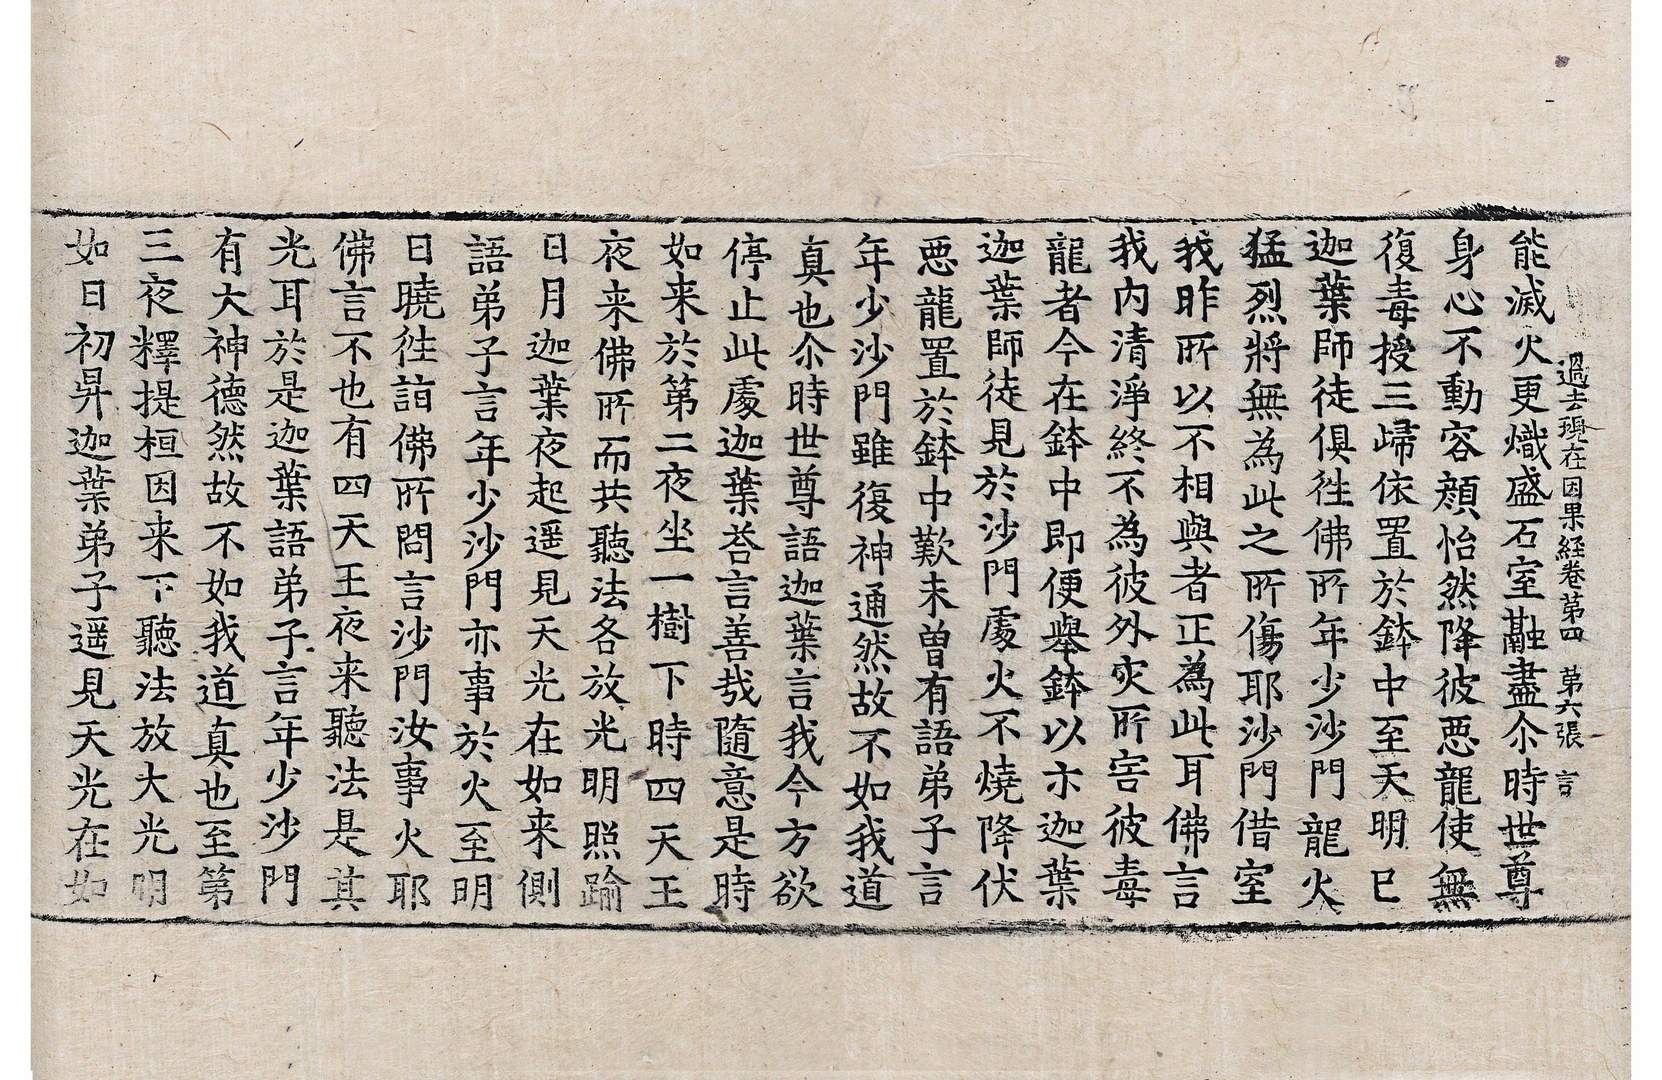 過去現在因果経卷苐四　苐六張　言
能滅火更熾盛石室融盡尒時世尊
身心不動容顔怡然降彼悪龍使無
復毒授三歸依置於鉢中至天明已
迦葉師徒俱徃佛所年少沙門龍火
猛烈將無為此之所傷耶沙門借室
我昨所以不相與者正為此耳佛言
我内清淨終不為彼外灾所害彼毒
龍者今在鉢中即便舉鉢以示迦葉
迦葉師徒見於沙門處火不燒降伏
悪龍置於鉢中歎未曽有語弟子言
年少沙門雖復神通然故不如我道
真也尒時世尊語迦葉言我今方欲
停止此處迦葉荅言善㢤隨意是時
如来於第二夜坐一樹下時四天王
夜来佛所而共聽法各放光明照踰
日月迦葉夜起遥見天光在如来側
語弟子言年少沙門亦事於火至明
日曉徃詣佛所問言沙門汝事火耶
佛言不也有四天王夜来聽法是其
光耳於是迦葉語弟子言年少沙門
有大神德然故不如我道真也至第
三夜釋提桓因来下聽法放大光明
如日初昇迦葉弟子遥見天光在如